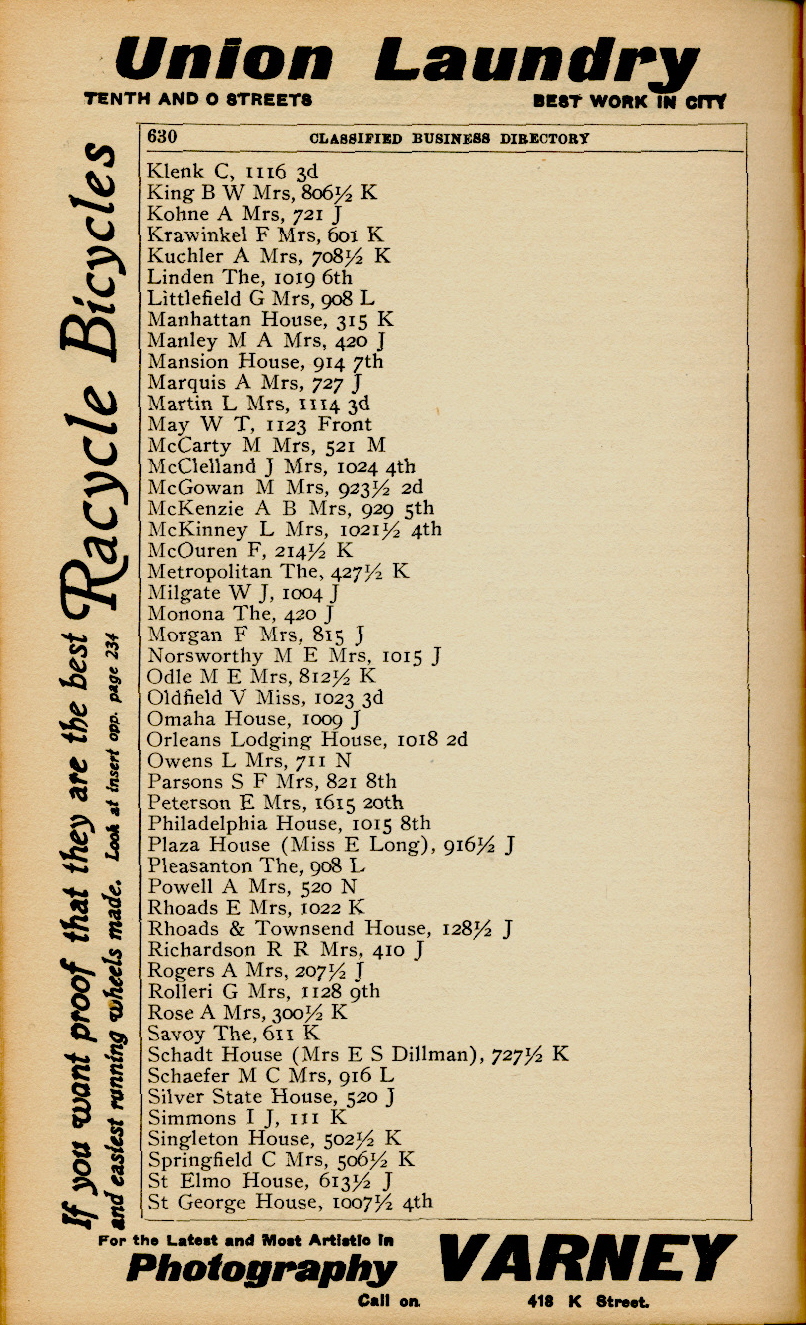 Union Laundry
TENTH AND O STREETS BEST WORK IN CITY
630 CLASSIFIED BUSINESS DIRECTORY
Klenk C, 1116 3d
King B W Mrs, 806½ K
Kohne A Mrs, 721 J
Krawinkel F Mrs, 601 K
Kuchler A Mrs, 708½ K
Linden The, 1019 6th
Littlefield G Mrs, 908 L
Manhattan House, 315 K
Manley M A Mrs, 420 J
Mansion House, 914 7th
Marquis A Mrs, 727 J
Martin L Mrs, 1114 3d
May W T, 1123 Front
McCarty M Mrs, 521 M
McClelland J Mrs, 1024 4th
McGowan M Mrs, 923½ 2d
McKenzie A B Mrs, 929 5th
McKinney L Mrs, 1021½ 4th
McOuren F, 214½ K
Metropolitan The, 427½ K
Milgate W J, 1004 J
Monona The, 420 J
Morgan F Mrs, 815 J
Norsworthy M E Mrs, 1015 J
Odle M E Mrs, 812½ K
Oldfield V Miss, 1023 3d
Omaha House, 1009 J
Orleans Lodging House, 1018 2d
Owens L Mrs, 711 N
Parsons S F Mrs, 821 8th
Peterson E Mrs, 1615 20th
Philadelphia House, 1015 8th
Plaza House (Miss E Long), 916½ J
Pleasanton The, 908 L
Powell A Mrs, 520 N
Rhoads E Mrs, 1022 K
Rhoads & Townsend House, 128½ J
Richardson R R Mrs, 410 J
Rogers A Mrs, 207½ J
Rolleri G Mrs, 1128 9th
Rose A Mrs, 300½ K
Savoy The, 611 K
Schadt House (Mrs E S Dillman), 727½ K
Schaefer M C Mrs, 916 L
Silver State House, 520 J
Simmons I J, 111 K
Singleton House, 502½ K
Springfield C Mrs, 506½ K
St Elmo House, 613½ J
St George House, 1007½ 4th
If you want proof that they are the best Racycle Bicycles
and easiest running wheels made. Look at insert opp. page 234
For the Latest and Most Artistic in
Photography VARNEY
Call on 418 K Street.